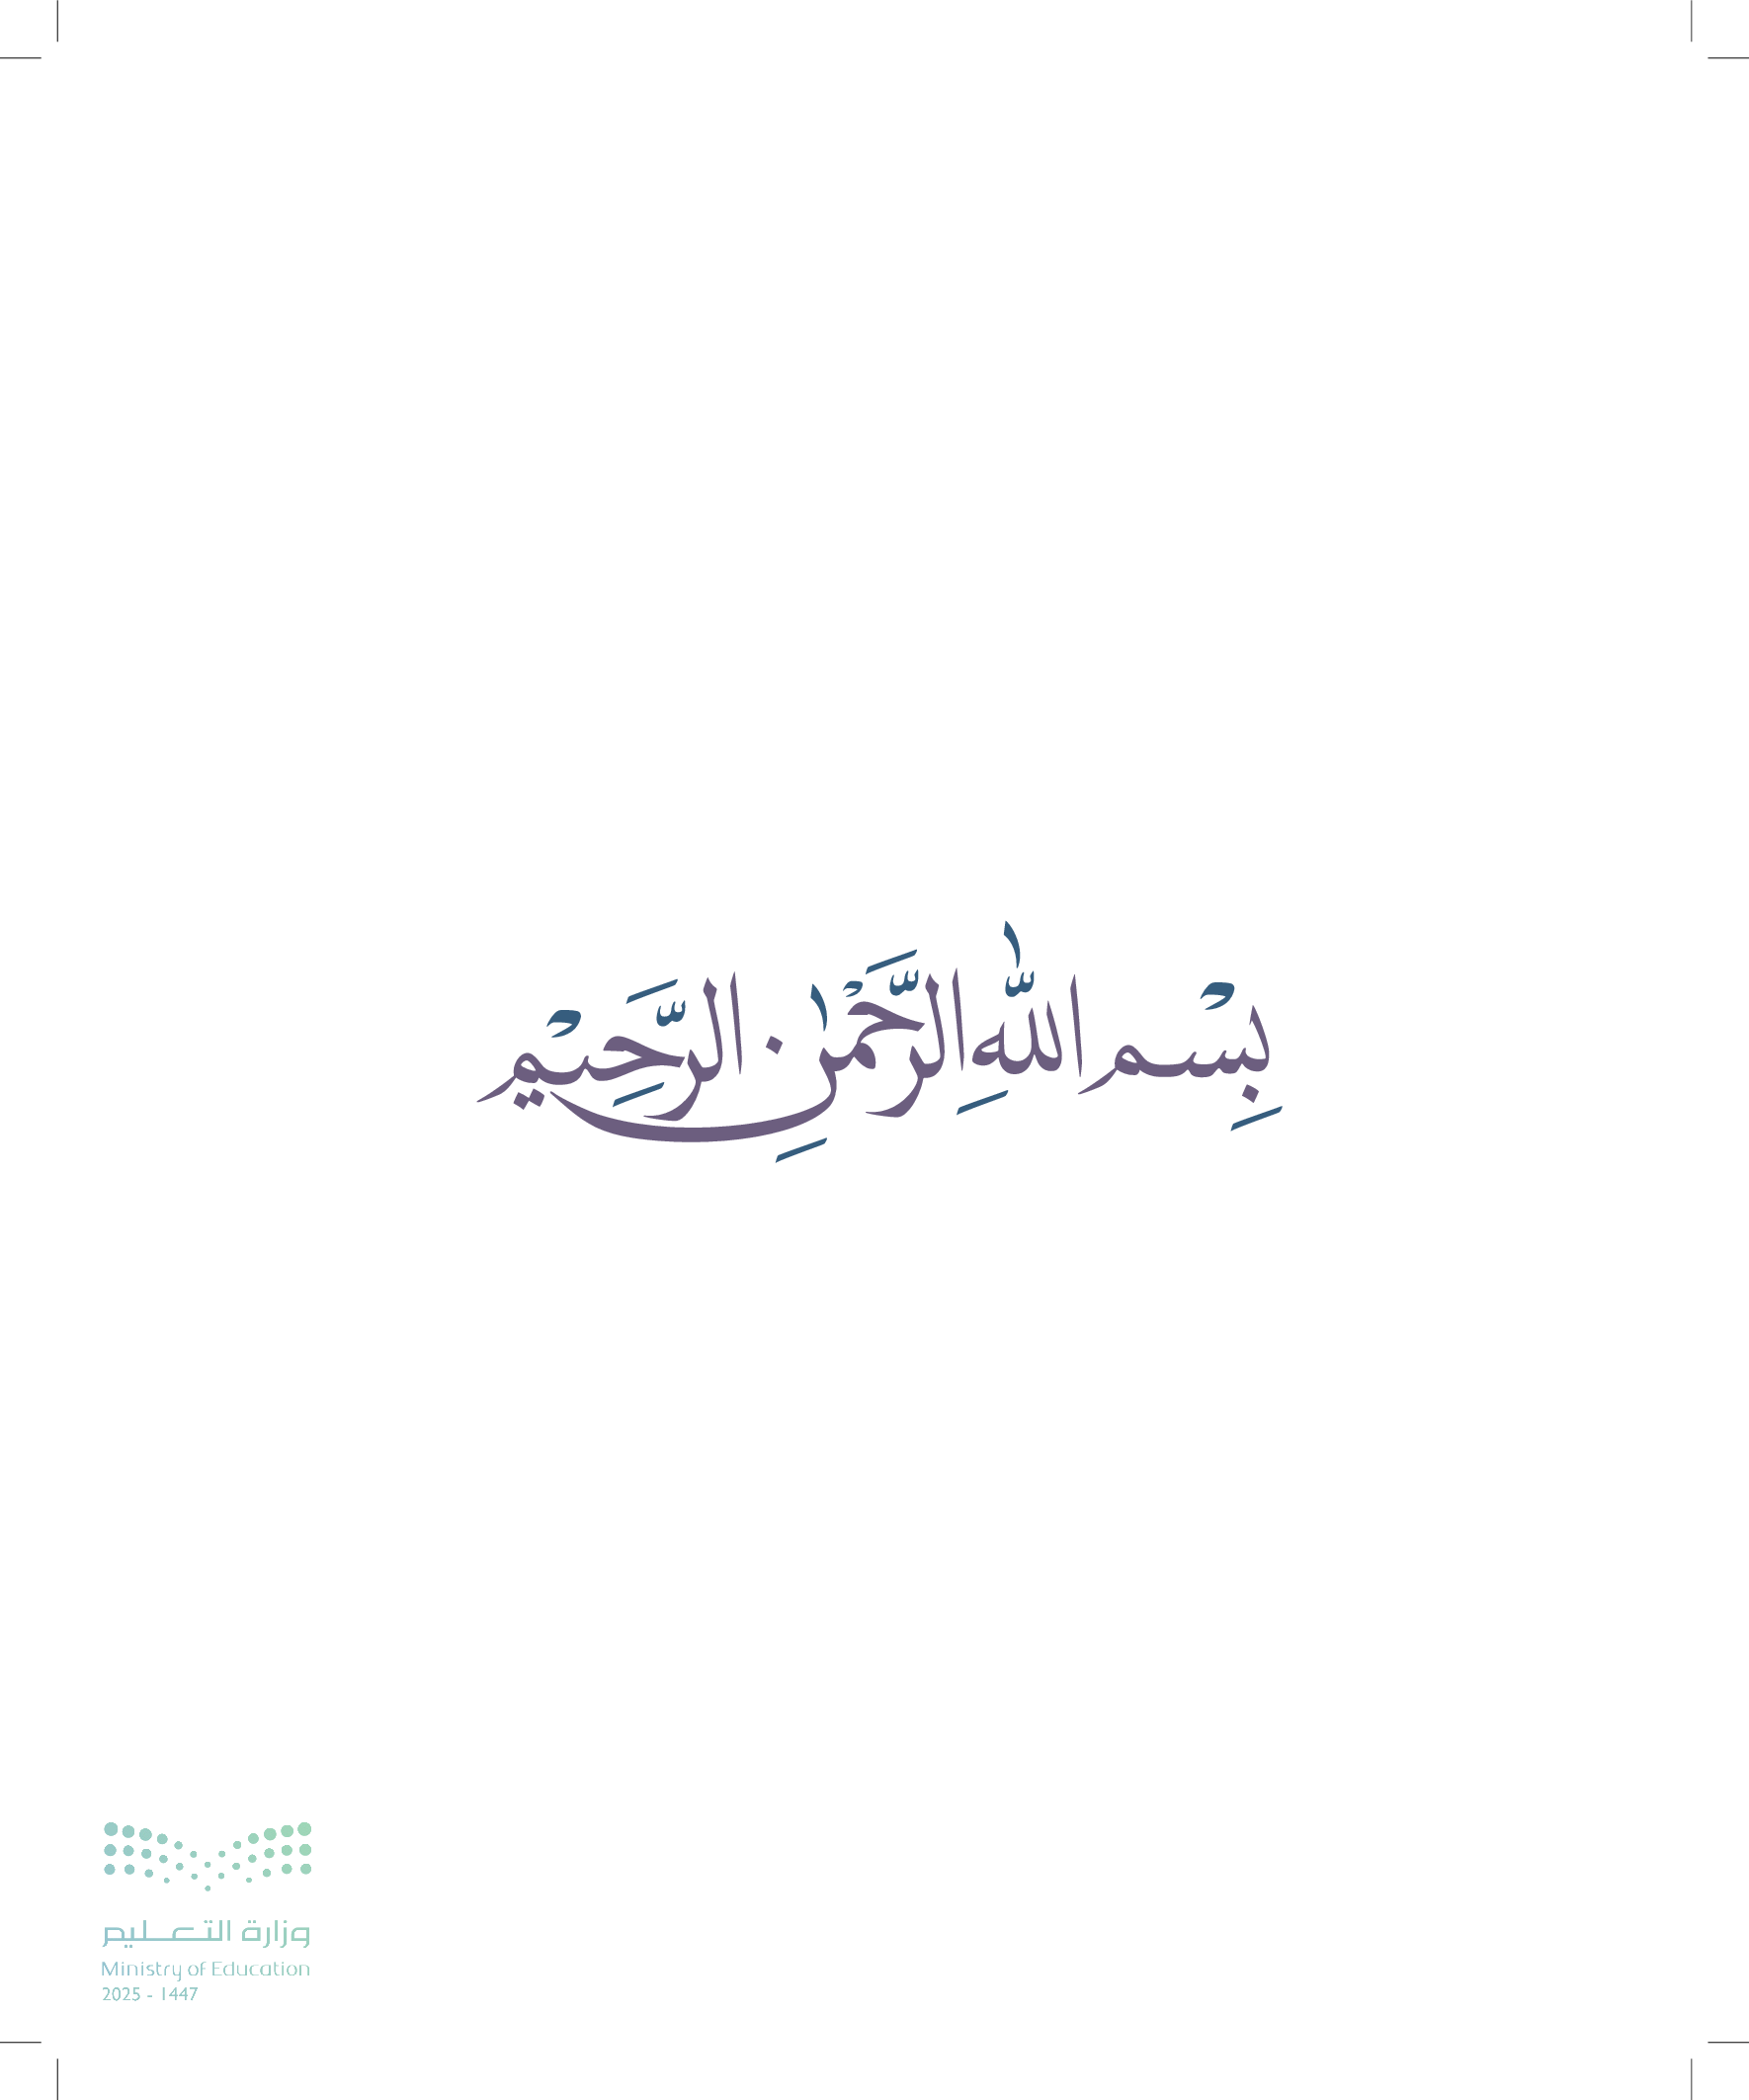 بِسْمِ اللّٰهِ الرَّحْمٰنِ الرَّحِيْمِ
وزارة التعليم
Ministry of Education
2025 - 1447